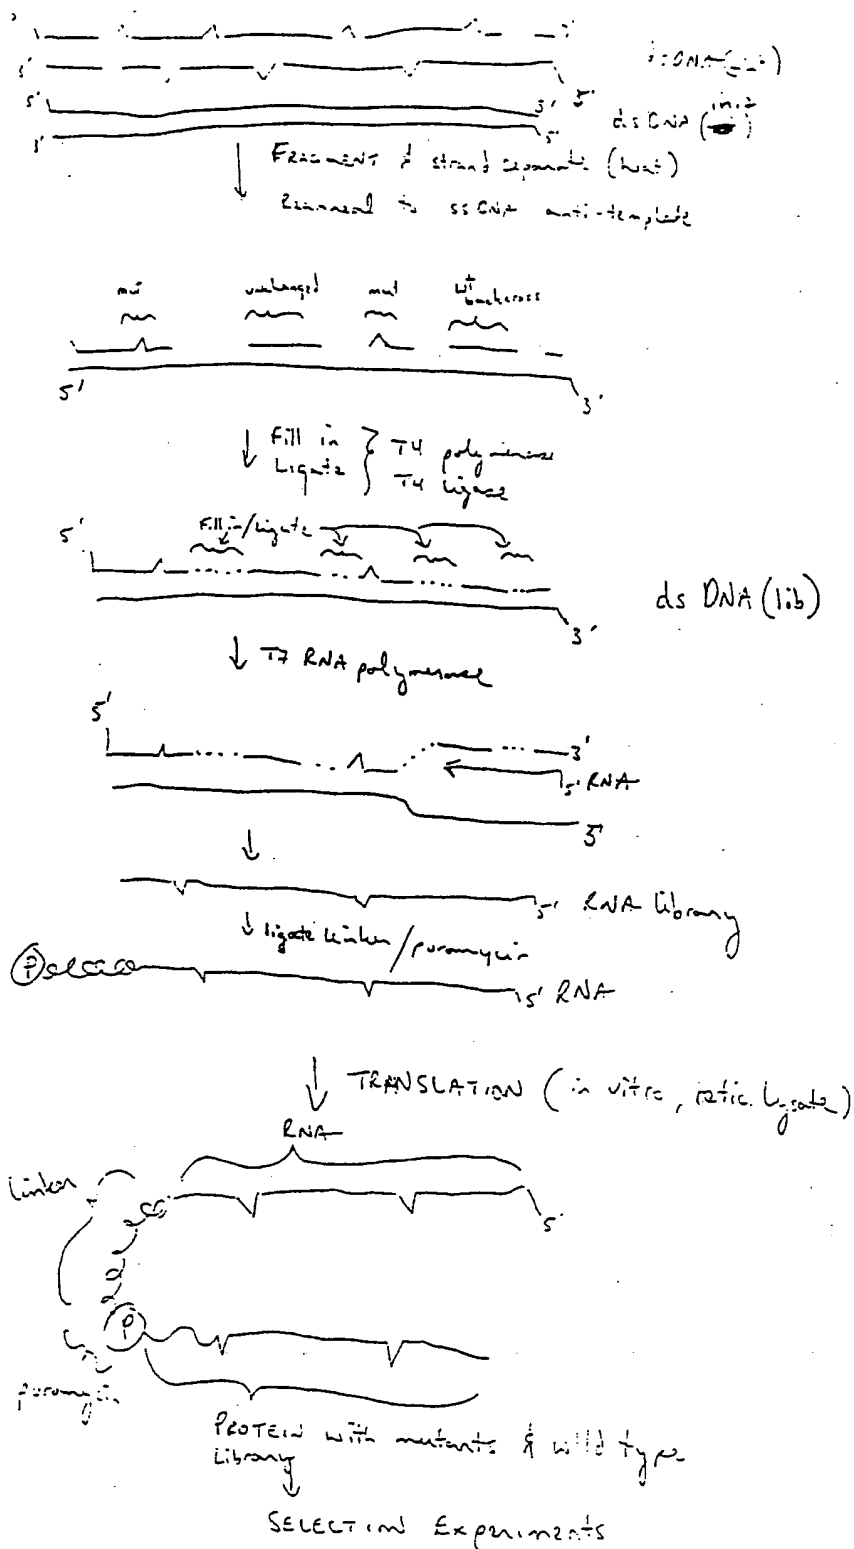 3'
5'
5'
3'
ds DNA (init)
3'
5'
FRAGMENT & strand separate (heat)
Reanneal to ssDNA anti-template
mut unchanged mut WT backcross
5'
3'
Fill in } T4 polymerase
Ligate } T4 ligase
Fill in/Ligate
5'
ds DNA (lib)
3'
T7 RNA polymerase
5'
3'
5' RNA
3'
5' RNA Library
ligate linker/puromycin
P
5' RNA
TRANSLATION (in vitro, retic. Lysate)
RNA
Linker
5'
P
puromycin
PROTEIN with mutants & wild type
Library
SELECTION Experiments